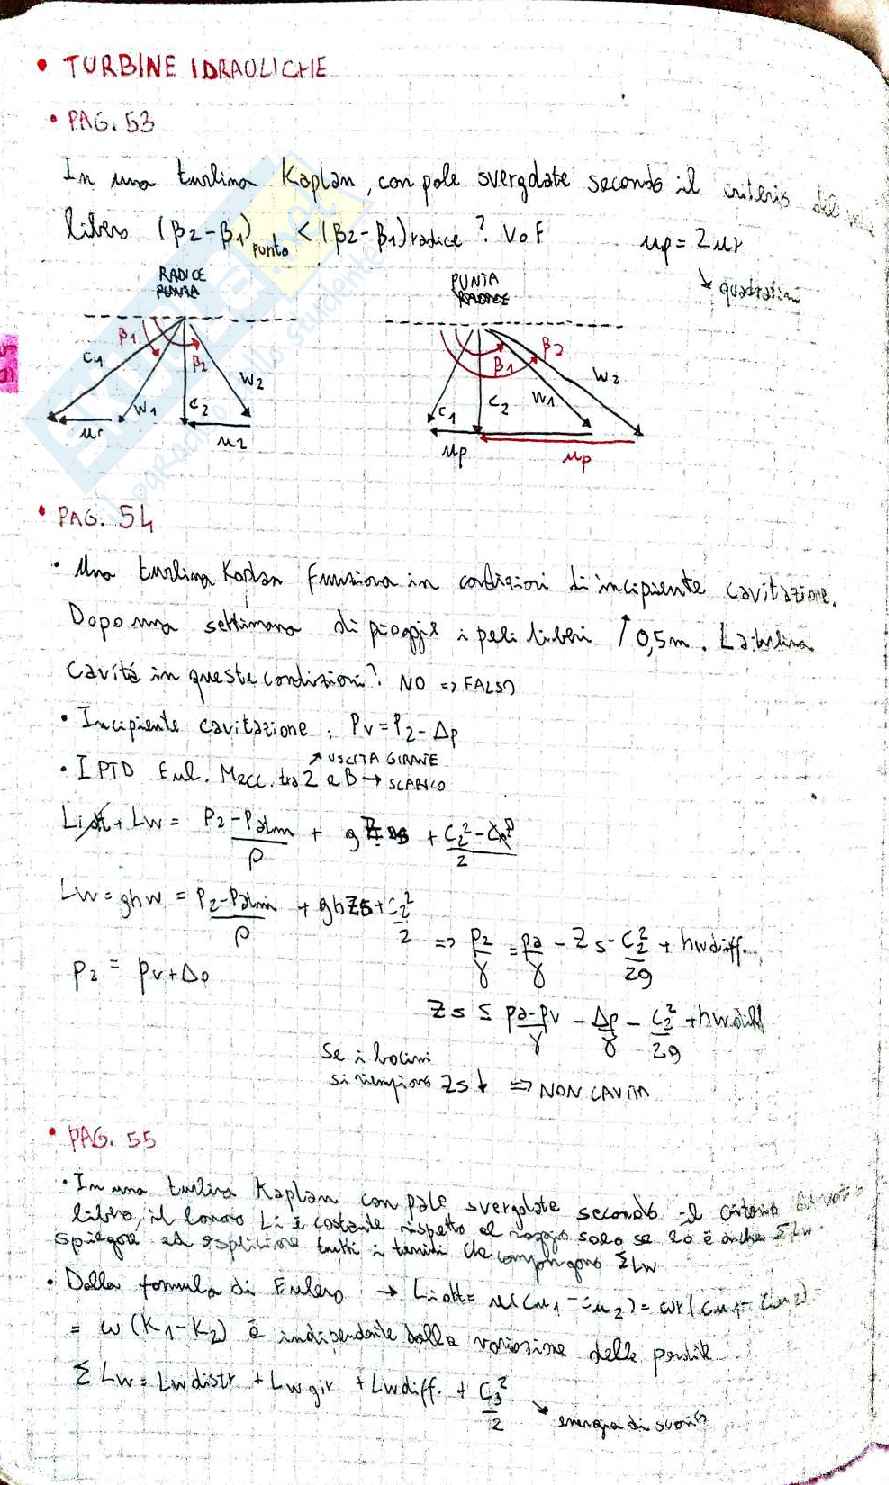 • TURBINE IDRAULICHE
• PAG. 53
In una turbina Kaplan, con pale svergolate secondo il criterio del
libero (β2-β1)punta < (β2-β1)radice? V o F
up = 2ur
↳ quadratica
RADICE
PUNTA
β1
β2
c1
w1
c2
w2
ur
u2
PUNTA
β1
β2
c1
c2
w1
w2
up
up
• PAG. 54
• Una turbina Kaplan funziona in condizioni di incipiente cavitazione.
Dopo una settimana di pioggie i peli liberi ↑ 0,5m. La turbina
cavita in queste condizioni? NO => FALSO
• Incipiente cavitazione: Pv = P2 - Δp
↗ USCITA GIRANTE
• I PTD Eul. Mecc. tra 2 e B → SCARICO
Li + Lw = P2-Patm/ρ + g Zs + C2²/2
Lw = ghw = P2-Patm/ρ + g Zs + C2²/2
=> P2/γ = pa/γ - Zs - C2²/2g + hwdiff.
P2 = pv + Δp
Zs ≤ pa-pv/γ - Δp/γ - C2²/2g + hwdiff
Se i bacini
si riempiono Zs ↓ => NON CAVITA
• PAG. 55
• In una turbina Kaplan con pale svergolate secondo il criterio del
libero, il lavoro Li è costante rispetto al raggio solo se lo è anche ΣLw.
Spiegare ed esplicitare tutti i termini che compongono ΣLw
• Dalla formula di Eulero → Li = u(cu1 - cu2) = wr(cu1 - cu2) =
= w(K1-K2) è indipendente dalla variazione delle perdite
Σ Lw = Lwdistr + Lwgir + Lwdiff. + C3²/2
↘ energia di scarico